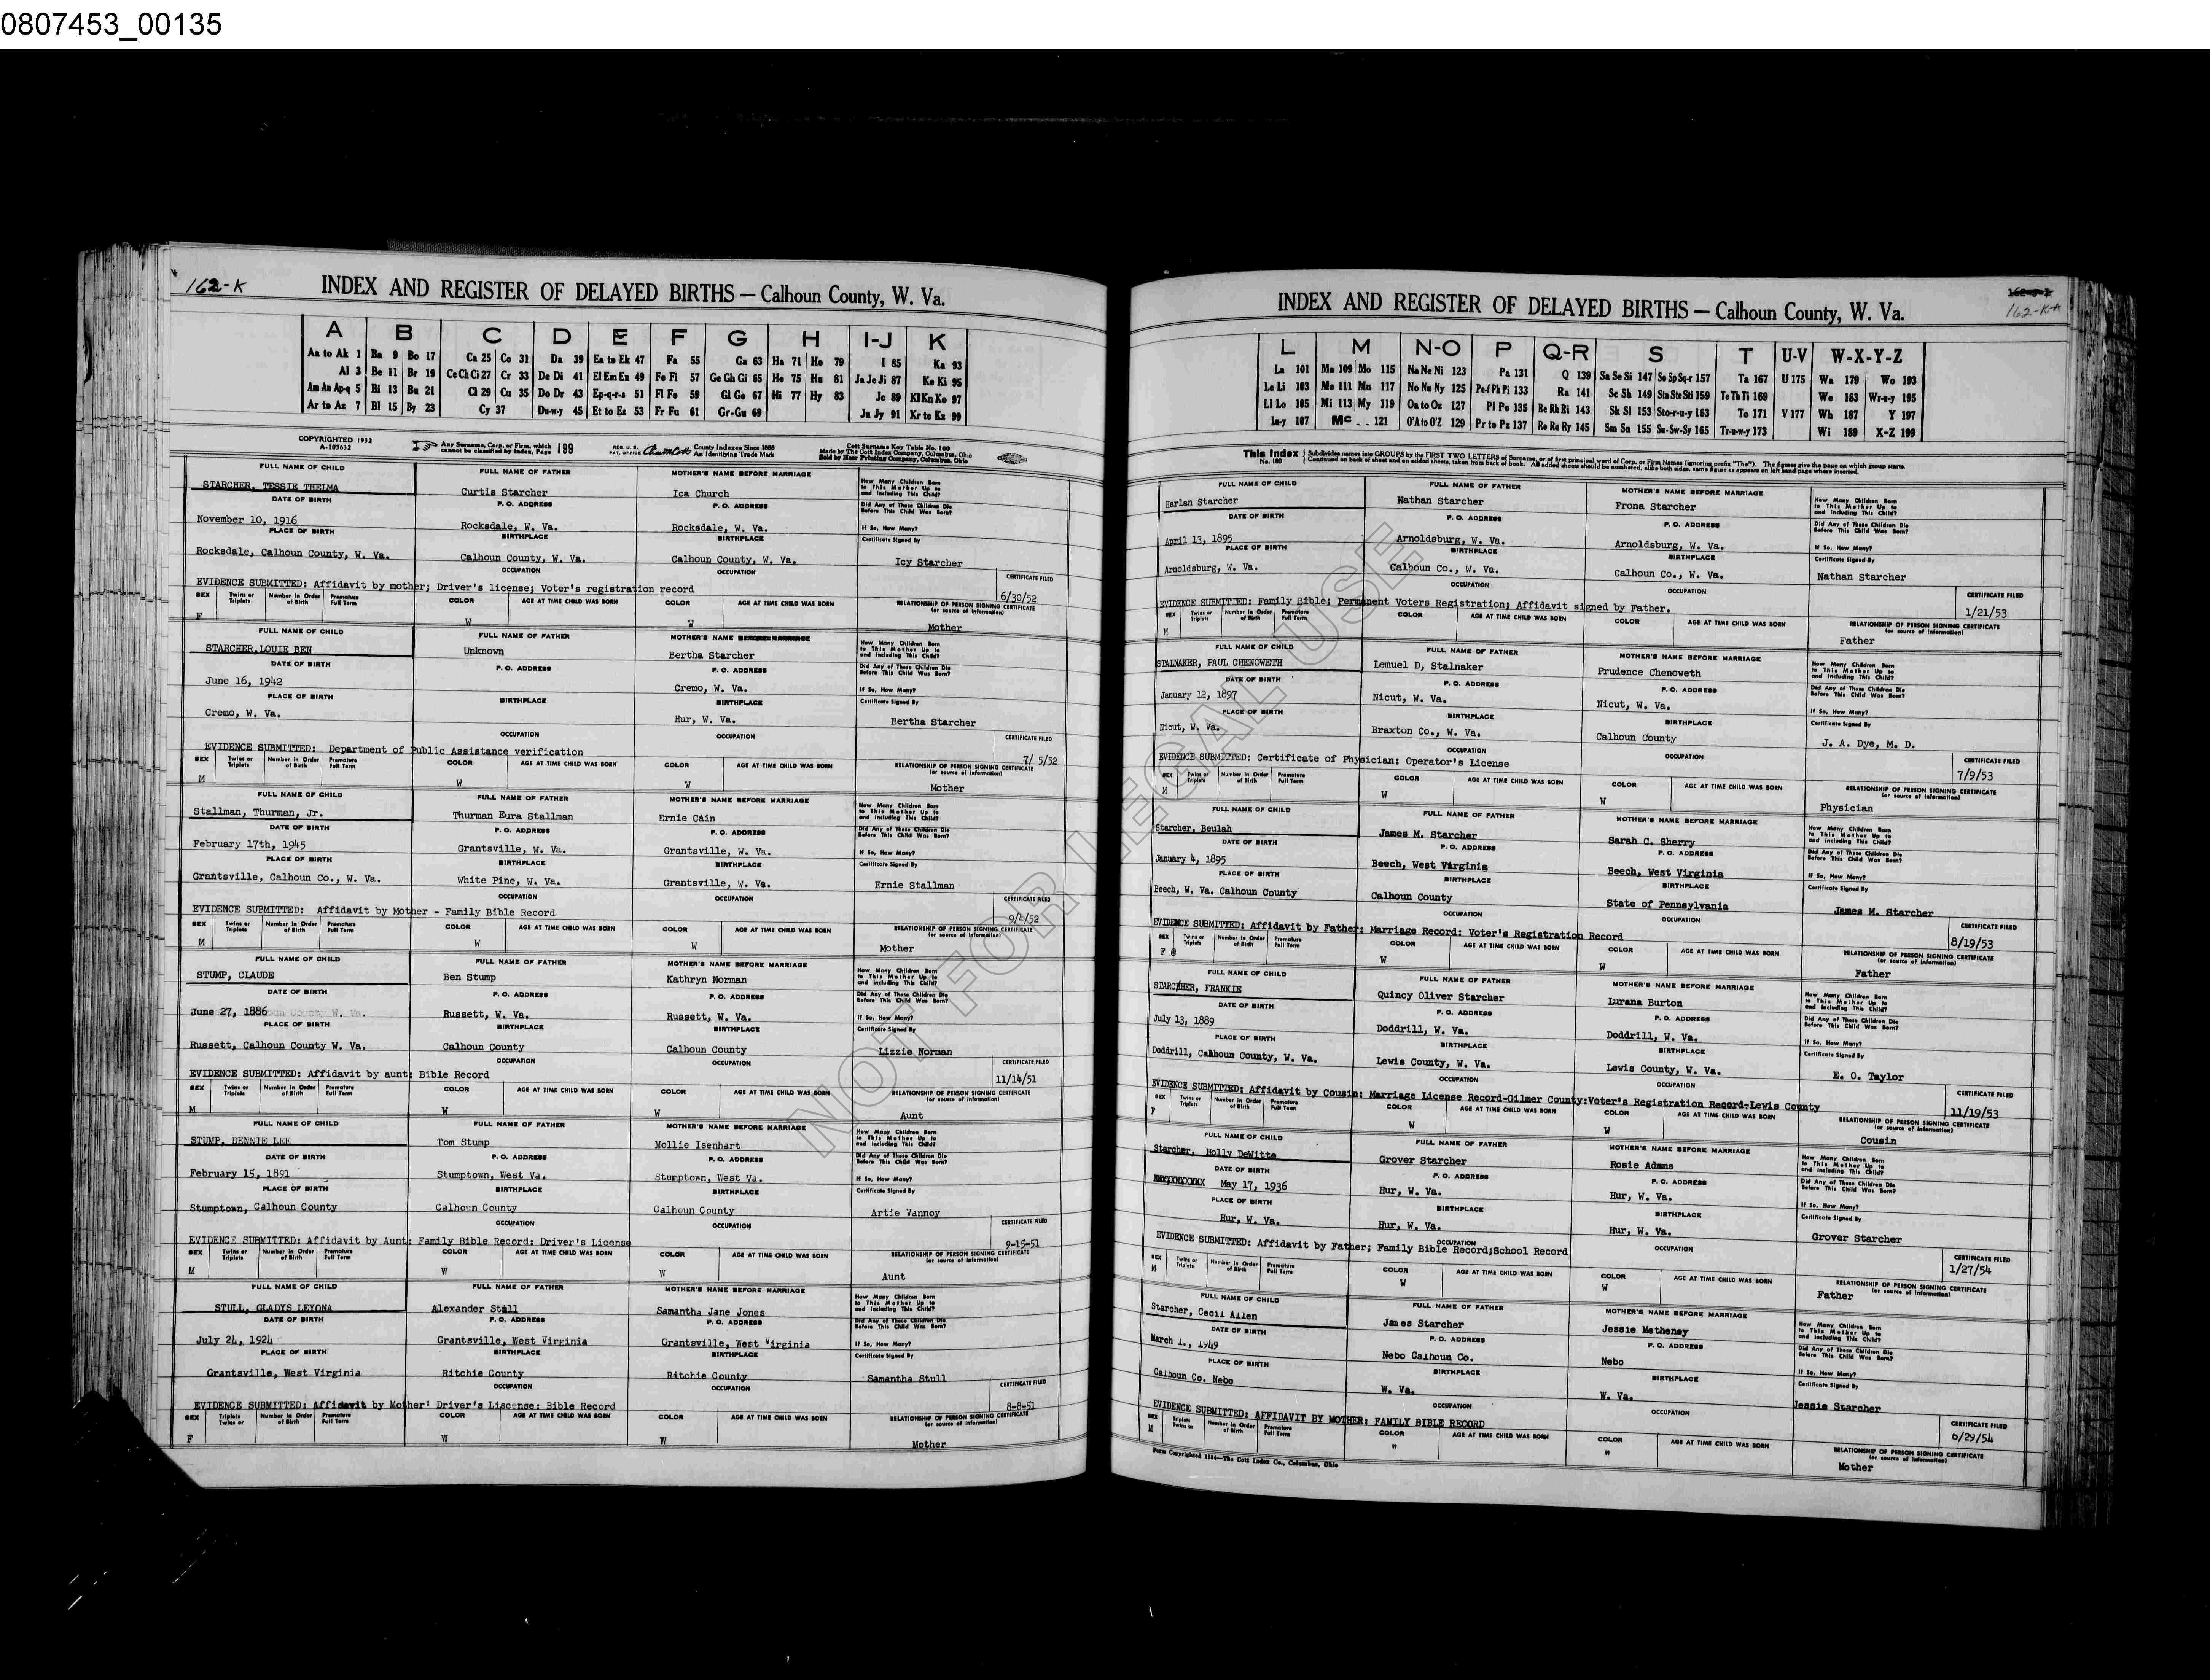 0807453_00135
162-K
INDEX AND REGISTER OF DELAYED BIRTHS — Calhoun County, W. Va.
A B C D E F G H I-J K
Aa to Ak 1 Ba 9 Bo 17 Ca 25 Co 31 Da 39 Ea to Ek 47 Fa 55 Ga 63 Ha 71 Ho 79 I 85 Ka 93
Al 3 Be 11 Br 19 Ce Ch Ci 27 Cr 33 De Di 41 El Em En 49 Fe Fi 57 Ge Gh Gi 65 He 75 Hu 81 Ja Je Ji 87 Ke Ki 95
Am An Ap-q 5 Bi 13 Bu 21 Cl 29 Cu 35 Do Dr 43 Ep-q-r-s 51 Fl Fo 59 Gl Go 67 Hi 77 Hy 83 Jo 89 Kl Kn Ko 97
Ar to Az 7 Bl 15 By 23 Cy 37 Du-w-y 45 Et to Ez 53 Fr Fu 61 Gr-Gu 69 Ju Jy 91 Kr to Kz 99
COPYRIGHTED 1932
A-103632
Any Surname, Corp. or Firm, which cannot be classified by Index, Page 199
REG. U. S. PAT. OFFICE
County Indexes Since 1888
An Identifying Trade Mark
Cott Surname Key Table No. 100
Made by The Cott Index Company, Columbus, Ohio
Sold by Heer Printing Company, Columbus, Ohio
FULL NAME OF CHILD FULL NAME OF FATHER MOTHER'S NAME BEFORE MARRIAGE How Many Children Born to This Mother Up to and Including This Child?
STARCHER, TESSIE THELMA Curtis Starcher Ica Church
DATE OF BIRTH P. O. ADDRESS P. O. ADDRESS Did Any of These Children Die Before This Child Was Born?
November 10, 1916 Rocksdale, W. Va. Rocksdale, W. Va. If So, How Many?
PLACE OF BIRTH BIRTHPLACE BIRTHPLACE Certificate Signed By
Rocksdale, Calhoun County, W. Va. Calhoun County, W. Va. Calhoun County, W. Va. Icy Starcher
OCCUPATION OCCUPATION CERTIFICATE FILED
EVIDENCE SUBMITTED: Affidavit by mother; Driver's license; Voter's registration record 6/30/52
SEX Twins or Triplets Number in Order of Birth Premature Full Term COLOR AGE AT TIME CHILD WAS BORN COLOR AGE AT TIME CHILD WAS BORN RELATIONSHIP OF PERSON SIGNING CERTIFICATE (or source of information)
F W W Mother
FULL NAME OF CHILD FULL NAME OF FATHER MOTHER'S NAME BEFORE MARRIAGE How Many Children Born to This Mother Up to and Including This Child?
STARCHER,LOUIE BEN Unknown Bertha Starcher
DATE OF BIRTH P. O. ADDRESS P. O. ADDRESS Did Any of These Children Die Before This Child Was Born?
June 16, 1942 Cremo, W. Va. If So, How Many?
PLACE OF BIRTH BIRTHPLACE BIRTHPLACE Certificate Signed By
Cremo, W. Va. Hur, W. Va. Bertha Starcher
OCCUPATION OCCUPATION CERTIFICATE FILED
EVIDENCE SUBMITTED: Department of Public Assistance verification 7/ 5/52
SEX Twins or Triplets Number in Order of Birth Premature Full Term COLOR AGE AT TIME CHILD WAS BORN COLOR AGE AT TIME CHILD WAS BORN RELATIONSHIP OF PERSON SIGNING CERTIFICATE (or source of information)
M W W Mother
FULL NAME OF CHILD FULL NAME OF FATHER MOTHER'S NAME BEFORE MARRIAGE How Many Children Born to This Mother Up to and Including This Child?
Stallman, Thurman, Jr. Thurman Eura Stallman Ernie Cain
DATE OF BIRTH P. O. ADDRESS P. O. ADDRESS Did Any of These Children Die Before This Child Was Born?
February 17th, 1945 Grantsville, W. Va. Grantsville, W. Va. If So, How Many?
PLACE OF BIRTH BIRTHPLACE BIRTHPLACE Certificate Signed By
Grantsville, Calhoun Co., W. Va. White Pine, W. Va. Grantsville, W. Va. Ernie Stallman
OCCUPATION OCCUPATION CERTIFICATE FILED
EVIDENCE SUBMITTED: Affidavit by Mother - Family Bible Record 9/4/52
SEX Twins or Triplets Number in Order of Birth Premature Full Term COLOR AGE AT TIME CHILD WAS BORN COLOR AGE AT TIME CHILD WAS BORN RELATIONSHIP OF PERSON SIGNING CERTIFICATE (or source of information)
M W W Mother
FULL NAME OF CHILD FULL NAME OF FATHER MOTHER'S NAME BEFORE MARRIAGE How Many Children Born to This Mother Up to and Including This Child?
STUMP, CLAUDE Ben Stump Kathryn Norman
DATE OF BIRTH P. O. ADDRESS P. O. ADDRESS Did Any of These Children Die Before This Child Was Born?
June 27, 1886 Russett, W. Va. Russett, W. Va. If So, How Many?
PLACE OF BIRTH BIRTHPLACE BIRTHPLACE Certificate Signed By
Russett, Calhoun County W. Va. Calhoun County Calhoun County Lizzie Norman
OCCUPATION OCCUPATION CERTIFICATE FILED
EVIDENCE SUBMITTED: Affidavit by aunt: Bible Record 11/14/51
SEX Twins or Triplets Number in Order of Birth Premature Full Term COLOR AGE AT TIME CHILD WAS BORN COLOR AGE AT TIME CHILD WAS BORN RELATIONSHIP OF PERSON SIGNING CERTIFICATE (or source of information)
M W W Aunt
FULL NAME OF CHILD FULL NAME OF FATHER MOTHER'S NAME BEFORE MARRIAGE How Many Children Born to This Mother Up to and Including This Child?
STUMP, DENNIE LEE Tom Stump Mollie Isenhart
DATE OF BIRTH P. O. ADDRESS P. O. ADDRESS Did Any of These Children Die Before This Child Was Born?
February 15, 1891 Stumptown, West Va. Stumptown, West Va. If So, How Many?
PLACE OF BIRTH BIRTHPLACE BIRTHPLACE Certificate Signed By
Stumptown, Calhoun County Calhoun County Calhoun County Artie Vannoy
OCCUPATION OCCUPATION CERTIFICATE FILED
EVIDENCE SUBMITTED: Affidavit by Aunt: Family Bible Record: Driver's License 9-15-51
SEX Twins or Triplets Number in Order of Birth Premature Full Term COLOR AGE AT TIME CHILD WAS BORN COLOR AGE AT TIME CHILD WAS BORN RELATIONSHIP OF PERSON SIGNING CERTIFICATE (or source of information)
M W W Aunt
FULL NAME OF CHILD FULL NAME OF FATHER MOTHER'S NAME BEFORE MARRIAGE How Many Children Born to This Mother Up to and Including This Child?
STULL, GLADYS LEYONA Alexander Stull Samantha Jane Jones
DATE OF BIRTH P. O. ADDRESS P. O. ADDRESS Did Any of These Children Die Before This Child Was Born?
July 24, 1924 Grantsville, West Virginia Grantsville, West Virginia If So, How Many?
PLACE OF BIRTH BIRTHPLACE BIRTHPLACE Certificate Signed By
Grantsville, West Virginia Ritchie County Ritchie County Samantha Stull
OCCUPATION OCCUPATION CERTIFICATE FILED
EVIDENCE SUBMITTED: Affidavit by Mother: Driver's Liscense: Bible Record 8-8-51
SEX Triplets Twins or Number in Order of Birth Premature Full Term COLOR AGE AT TIME CHILD WAS BORN COLOR AGE AT TIME CHILD WAS BORN RELATIONSHIP OF PERSON SIGNING CERTIFICATE (or source of information)
F W W Mother
162-K-A
INDEX AND REGISTER OF DELAYED BIRTHS — Calhoun County, W. Va.
L M N-O P Q-R S T U-V W-X-Y-Z
La 101 Ma 109 Mo 115 Na Ne Ni 123 Pa 131 Q 139 Sa Se Si 147 So Sp Sq-r 157 Ta 167 U 175 Wa 179 Wo 193
Le Li 103 Me 111 Mu 117 No Nu Ny 125 Pe-f Ph Pi 133 Ra 141 Sc Sh 149 Sta Ste Sti 159 Te Th Ti 169 We 183 Wr-u-y 195
Ll Lo 105 Mi 113 My 119 Oa to Oz 127 Pl Po 135 Re Rh Ri 143 Sk Sl 153 Sto-r-u-y 163 To 171 V 177 Wh 187 Y 197
Lu-y 107 Mc 121 O'A to O'Z 129 Pr to Pz 137 Ro Ru Ry 145 Sm Sn 155 Su-Sw-Sy 165 Tr-u-w-y 173 Wi 189 X-Z 199
This Index No. 100 Subdivides names into GROUPS by the FIRST TWO LETTERS of Surname, or of first principal word of Corp. or Firm Names (ignoring prefix "The"). The figures give the page on which group starts.
Continued on back of sheet and on added sheets, taken from back of book. All added sheets should be numbered, alike both sides, same figure as appears on left hand page where inserted.
FULL NAME OF CHILD FULL NAME OF FATHER MOTHER'S NAME BEFORE MARRIAGE How Many Children Born to This Mother Up to and Including This Child?
Harlan Starcher Nathan Starcher Frona Starcher
DATE OF BIRTH P. O. ADDRESS P. O. ADDRESS Did Any of These Children Die Before This Child Was Born?
April 13, 1895 Arnoldsburg, W. Va. Arnoldsburg, W. Va. If So, How Many?
PLACE OF BIRTH BIRTHPLACE BIRTHPLACE Certificate Signed By
Arnoldsburg, W. Va. Calhoun Co., W. Va. Calhoun Co., W. Va. Nathan Starcher
OCCUPATION OCCUPATION CERTIFICATE FILED
EVIDENCE SUBMITTED: Family Bible; Permanent Voters Registration; Affidavit signed by Father. 1/21/53
SEX Twins or Triplets Number in Order of Birth Premature Full Term COLOR AGE AT TIME CHILD WAS BORN COLOR AGE AT TIME CHILD WAS BORN RELATIONSHIP OF PERSON SIGNING CERTIFICATE (or source of information)
M Father
FULL NAME OF CHILD FULL NAME OF FATHER MOTHER'S NAME BEFORE MARRIAGE How Many Children Born to This Mother Up to and Including This Child?
STALNAKER, PAUL CHENOWETH Lemuel D, Stalnaker Prudence Chenoweth
DATE OF BIRTH P. O. ADDRESS P. O. ADDRESS Did Any of These Children Die Before This Child Was Born?
January 12, 1897 Nicut, W. Va. Nicut, W. Va. If So, How Many?
PLACE OF BIRTH BIRTHPLACE BIRTHPLACE Certificate Signed By
Nicut, W. Va. Braxton Co., W. Va. Calhoun County J. A. Dye, M. D.
OCCUPATION OCCUPATION CERTIFICATE FILED
EVIDENCE SUBMITTED: Certificate of Physician: Operator's License 7/9/53
SEX Twins or Triplets Number in Order of Birth Premature Full Term COLOR AGE AT TIME CHILD WAS BORN COLOR AGE AT TIME CHILD WAS BORN RELATIONSHIP OF PERSON SIGNING CERTIFICATE (or source of information)
M W W Physician
FULL NAME OF CHILD FULL NAME OF FATHER MOTHER'S NAME BEFORE MARRIAGE How Many Children Born to This Mother Up to and Including This Child?
Starcher, Beulah James M. Starcher Sarah C. Sherry
DATE OF BIRTH P. O. ADDRESS P. O. ADDRESS Did Any of These Children Die Before This Child Was Born?
January 4, 1895 Beech, West Virginia Beech, West Virginia If So, How Many?
PLACE OF BIRTH BIRTHPLACE BIRTHPLACE Certificate Signed By
Beech, W. Va. Calhoun County Calhoun County State of Pennsylvania James M. Starcher
OCCUPATION OCCUPATION CERTIFICATE FILED
EVIDENCE SUBMITTED: Affidavit by Father: Marriage Record: Voter's Registration Record 8/19/53
SEX Twins or Triplets Number in Order of Birth Premature Full Term COLOR AGE AT TIME CHILD WAS BORN COLOR AGE AT TIME CHILD WAS BORN RELATIONSHIP OF PERSON SIGNING CERTIFICATE (or source of information)
F W W Father
FULL NAME OF CHILD FULL NAME OF FATHER MOTHER'S NAME BEFORE MARRIAGE How Many Children Born to This Mother Up to and Including This Child?
STARCHER, FRANKIE Quincy Oliver Starcher Lurana Burton
DATE OF BIRTH P. O. ADDRESS P. O. ADDRESS Did Any of These Children Die Before This Child Was Born?
July 13, 1889 Doddrill, W. Va. Doddrill, W. Va. If So, How Many?
PLACE OF BIRTH BIRTHPLACE BIRTHPLACE Certificate Signed By
Doddrill, Calhoun County, W. Va. Lewis County, W. Va. Lewis County, W. Va. E. O. Taylor
OCCUPATION OCCUPATION CERTIFICATE FILED
EVIDENCE SUBMITTED: Affidavit by Cousin: Marriage License Record-Gilmer County:Voter's Registration Record-Lewis County 11/19/53
SEX Twins or Triplets Number in Order of Birth Premature Full Term COLOR AGE AT TIME CHILD WAS BORN COLOR AGE AT TIME CHILD WAS BORN RELATIONSHIP OF PERSON SIGNING CERTIFICATE (or source of information)
F W W Cousin
FULL NAME OF CHILD FULL NAME OF FATHER MOTHER'S NAME BEFORE MARRIAGE How Many Children Born to This Mother Up to and Including This Child?
Starcher, Holly DeWitte Grover Starcher Rosie Adams
DATE OF BIRTH P. O. ADDRESS P. O. ADDRESS Did Any of These Children Die Before This Child Was Born?
May 17, 1936 Hur, W. Va. Hur, W. Va. If So, How Many?
PLACE OF BIRTH BIRTHPLACE BIRTHPLACE Certificate Signed By
Hur, W. Va. Hur, W. Va. Hur, W. Va. Grover Starcher
OCCUPATION OCCUPATION CERTIFICATE FILED
EVIDENCE SUBMITTED: Affidavit by Father; Family Bible Record;School Record 1/27/54
SEX Twins or Triplets Number in Order of Birth Premature Full Term COLOR AGE AT TIME CHILD WAS BORN COLOR AGE AT TIME CHILD WAS BORN RELATIONSHIP OF PERSON SIGNING CERTIFICATE (or source of information)
M W W Father
FULL NAME OF CHILD FULL NAME OF FATHER MOTHER'S NAME BEFORE MARRIAGE How Many Children Born to This Mother Up to and Including This Child?
Starcher, Cecil Allen James Starcher Jessie Metheney
DATE OF BIRTH P. O. ADDRESS P. O. ADDRESS Did Any of These Children Die Before This Child Was Born?
March 1, 1949 Nebo Calhoun Co. Nebo If So, How Many?
PLACE OF BIRTH BIRTHPLACE BIRTHPLACE Certificate Signed By
Calhoun Co. Nebo W. Va. W. Va. Jessie Starcher
OCCUPATION OCCUPATION CERTIFICATE FILED
EVIDENCE SUBMITTED: AFFIDAVIT BY MOTHER: FAMILY BIBLE RECORD 6/29/54
SEX Triplets Twins or Number in Order of Birth Premature Full Term COLOR AGE AT TIME CHILD WAS BORN COLOR AGE AT TIME CHILD WAS BORN RELATIONSHIP OF PERSON SIGNING CERTIFICATE (or source of information)
M W W Mother
Form Copyrighted 1934—The Cott Index Co., Columbus, Ohio
NOT FOR LEGAL USE